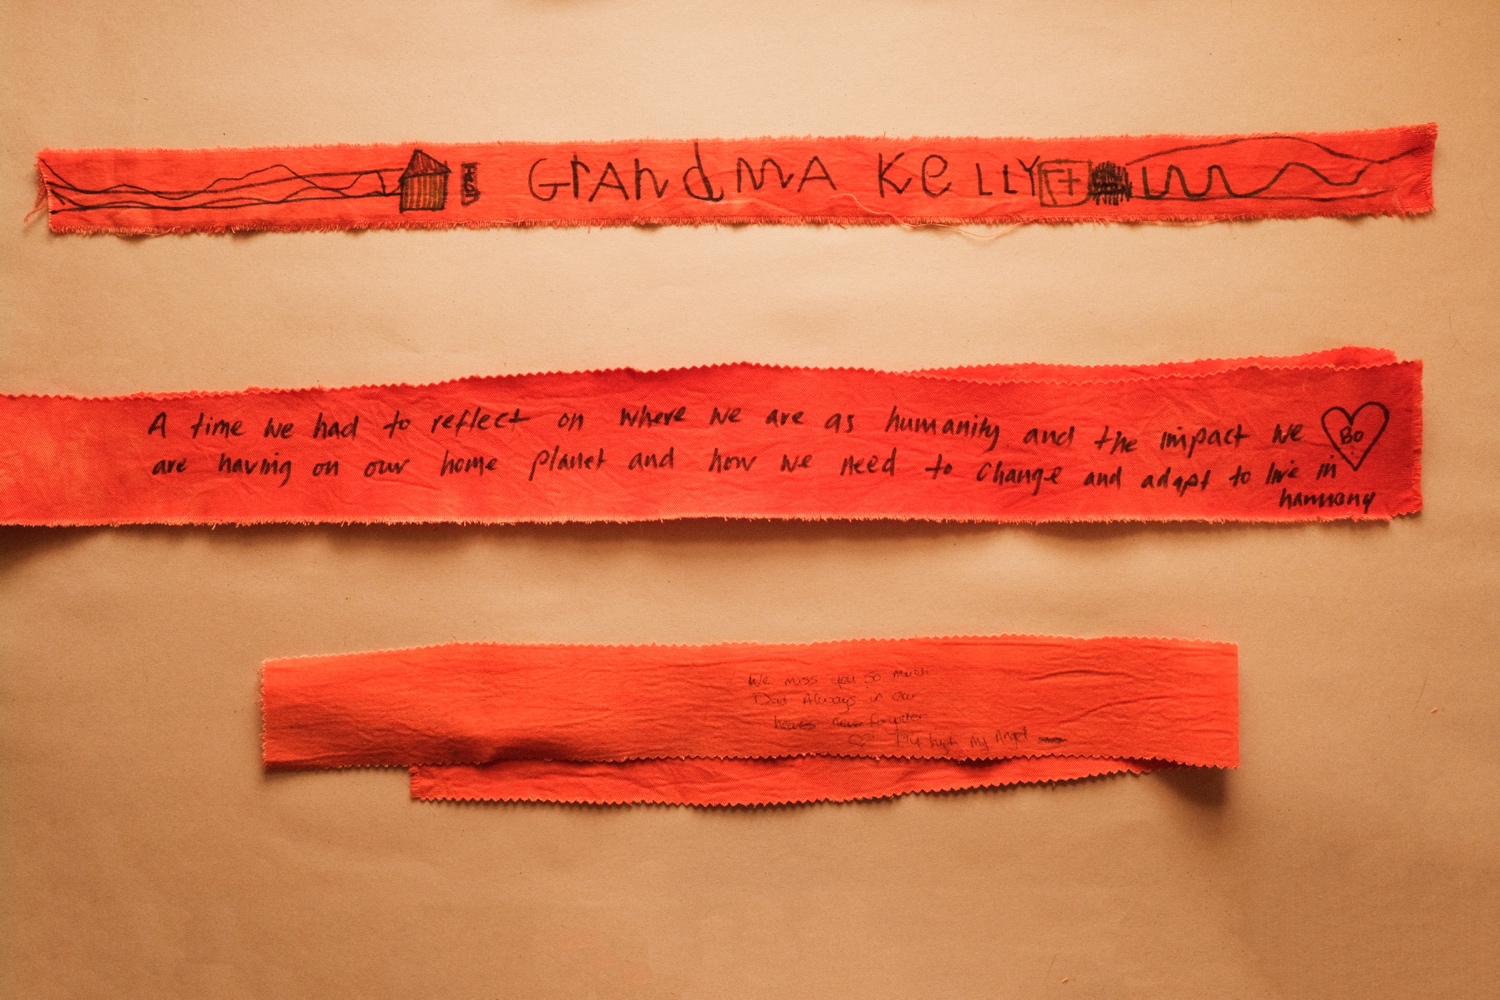 GrAndmA KeLLY
A time we had to reflect on where we are as humanity and the impact we
Bo
are having on our home planet and how we need to change and adapt to live in
harmony
We miss you so much
Dad Always in our
My Angel